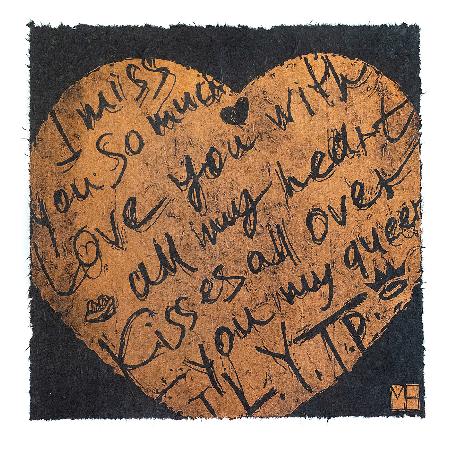 I miss
you so much
Love you with
all my heart
Kisses all over
you my queen
I L.Y.T.D.